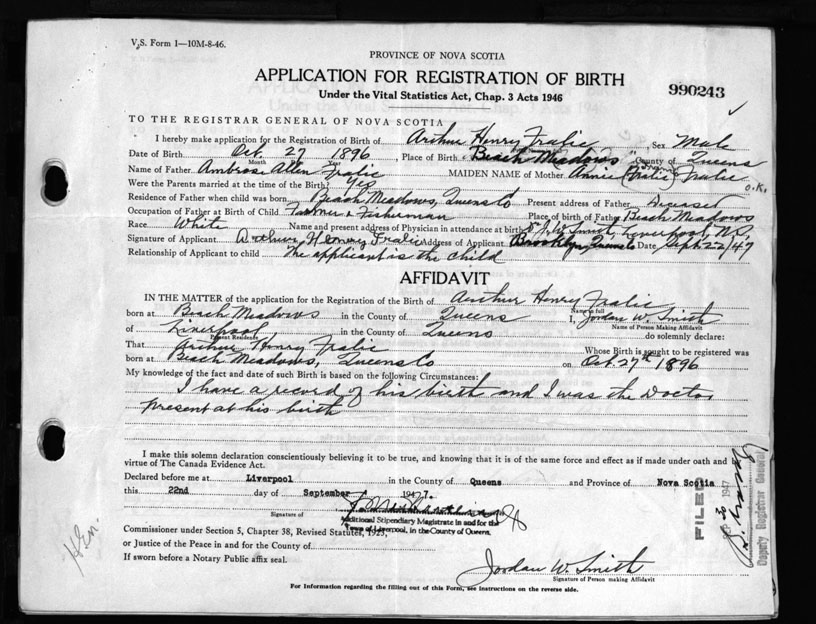 V.S. Form 1—10M-8-46.
PROVINCE OF NOVA SCOTIA
APPLICATION FOR REGISTRATION OF BIRTH
Under the Vital Statistics Act, Chap. 3 Acts 1946
990243
TO THE REGISTRAR GENERAL OF NOVA SCOTIA
I hereby make application for the Registration of Birth of Arthur Henry Fralic Sex Male
Date of Birth Oct. 27 1896, Place of Birth Beach Meadows County of Queens
Month Year
Name of Father Ambrose Allen Fralic MAIDEN NAME of Mother Annie (Fralic) Fralic
O.K.
Were the Parents married at time of the Birth? Yes
Residence of Father when child was born Beach Meadows, Queens Co Present address of Father Deceased
Occupation of Father at Birth of Child Farmer & Fisherman Place of birth of Father Beach Meadows
Race White Name and present address of Physician in attendance at birth Dr J. W. Smith, Liverpool, N.S.
Signature of Applicant Arthur Henry Fralic Address of Applicant Brooklyn, Queens Co Date Sept 22/47
Relationship of Applicant to child The applicant is the child
AFFIDAVIT
IN THE MATTER of the application for the Registration of Birth of Arthur Henry Fralic
Name in full
born at Beach Meadows in the County of Queens I, Jordan W. Smith
Name of Person Making Affidavit
of Liverpool in the County of Queens do solemnly declare:
Present Residence
That Arthur Henry Fralic Whose Birth is sought to be registered was
born at Beach Meadows, Queens Co on Oct. 27th 1896
My knowledge of the fact and date of such Birth is based on the following Circumstances:
I have a record of his birth and I was the Doctor
present at his birth
I make this solemn declaration conscientiously believing it to be true, and knowing that it is of the same force and effect as if made under oath and
virtue of The Canada Evidence Act.
Declared before me at Liverpool in the County of Queens and Province of Nova Scotia
this 22nd day of September 1947.
Signature of
Additional Stipendiary Magistrate in and for the
Town of Liverpool, in the County of Queens.
Commissioner under Section 5, Chapter 38, Revised Statutes, 1923,
or Justice of the Peace in and for the County of
If sworn before a Notary Public affix seal.
Jordan W. Smith
Signature of Person making Affidavit
For Information regarding the filling out of this Form, see instructions on the reverse side.
FILED
1947
Deputy Registrar General